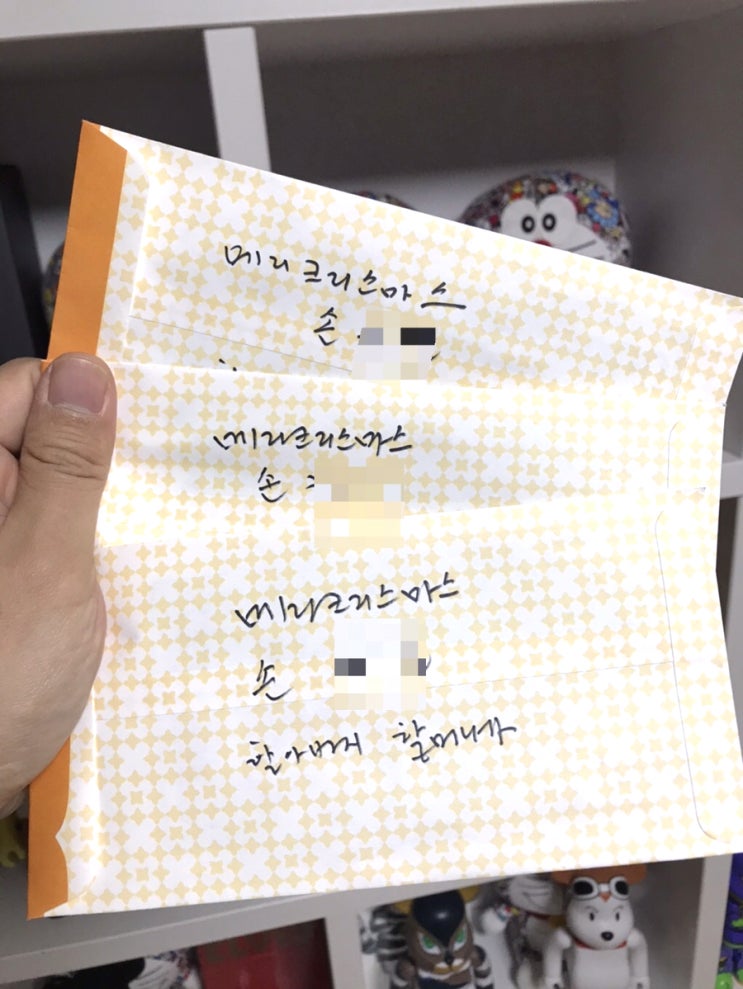 메리크리스마스
손
메리크리스마스
손
메리크리스마스
손
할아버지 할머니가